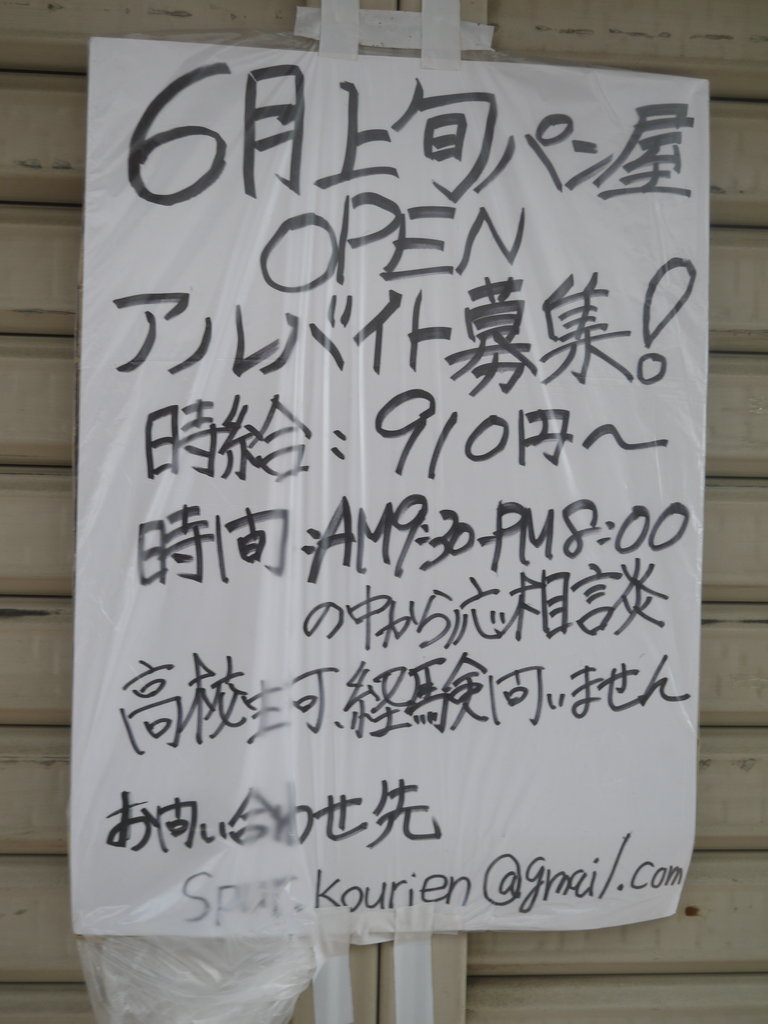 6月上旬パン屋
OPEN
アルバイト募集!
時給:910円~
時間:AM9:30-PM8:00
の中から応相談
高校生可、経験問いません
お問い合わせ先
kourien@gmail.com